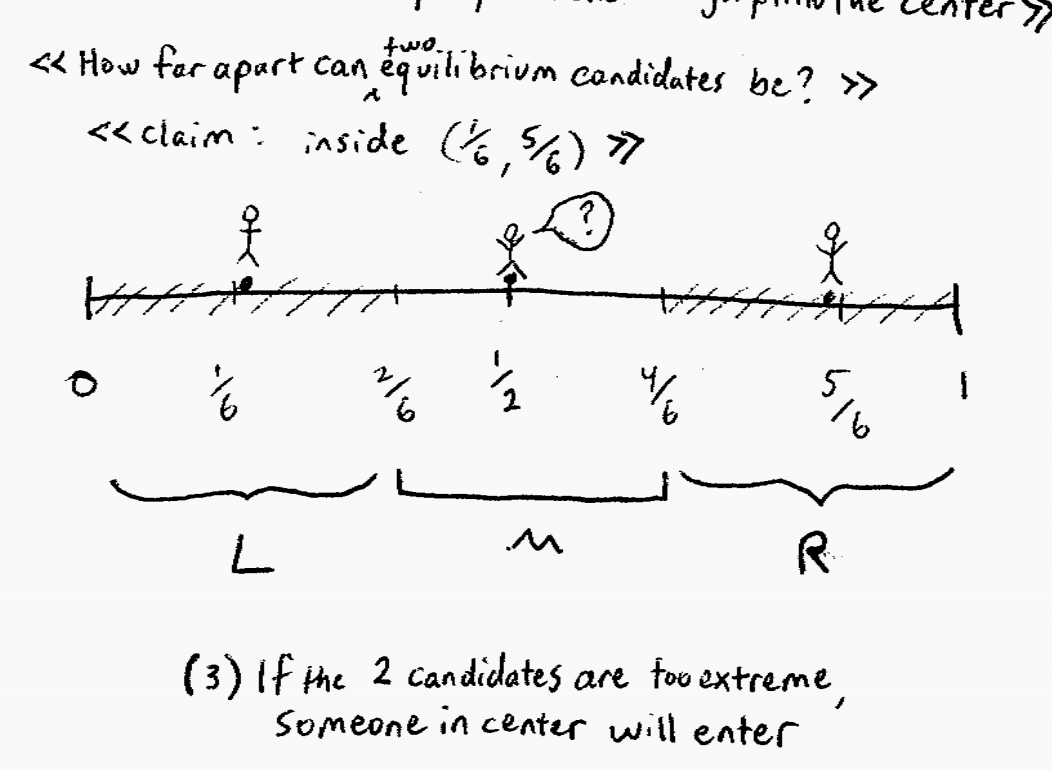 the center >>
<< How far apart can two equilibrium candidates be? >>
<< claim: inside (1/6, 5/6) >>
?
0 1/6 2/6 1/2 4/6 5/6 1
L M R
(3) If the 2 candidates are too extreme,
someone in center will enter